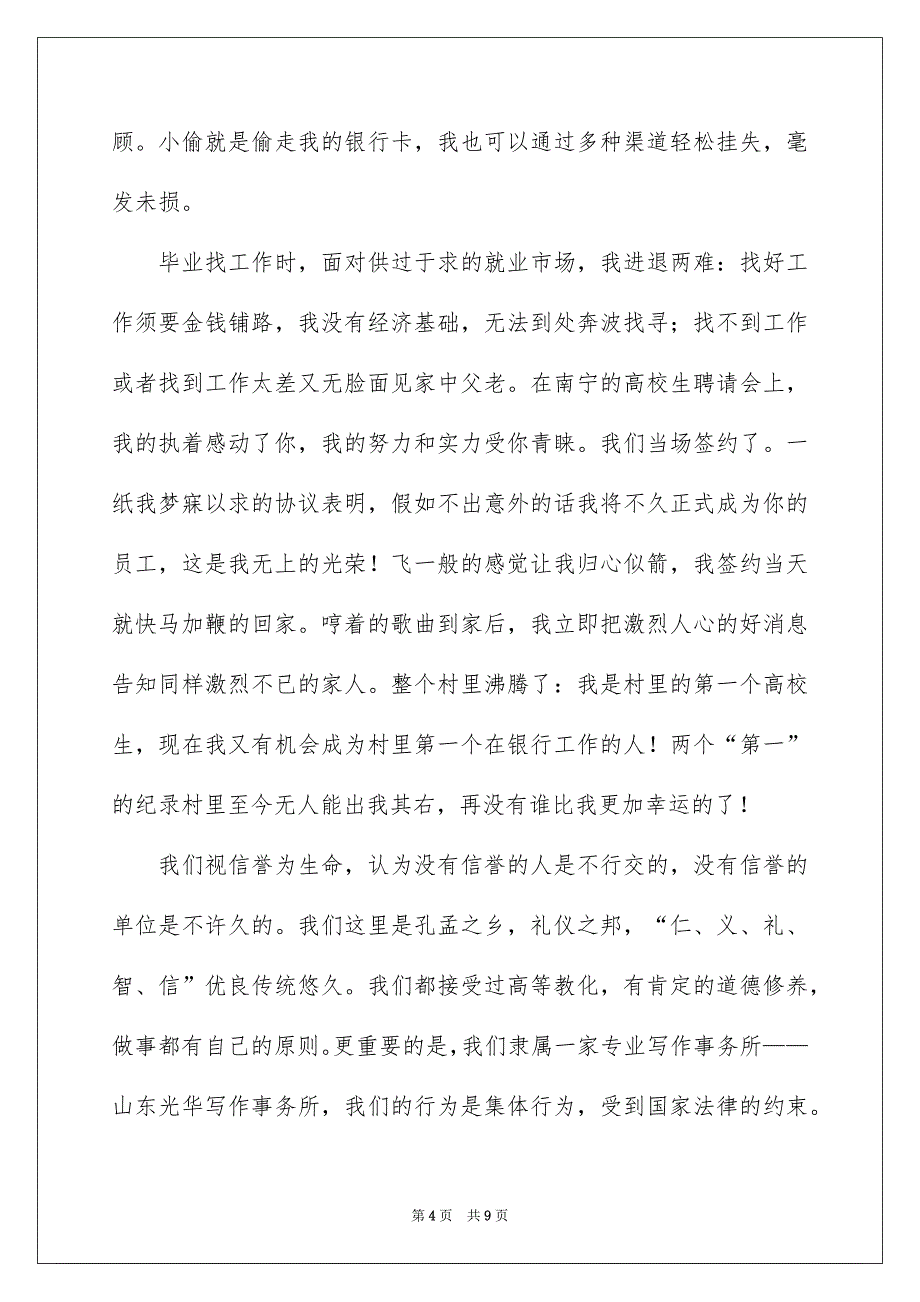 顾。小偷就是偷走我的银行卡，我也可以通过多种渠道轻松挂失，毫
发未损。
毕业找工作时，面对供过于求的就业市场，我进退两难：找好工
作须要金钱铺路，我没有经济基础，无法到处奔波找寻；找不到工作
或者找到工作太差又无脸面见家中父老。在南宁的高校生聘请会上，
我的执着感动了你，我的努力和实力受你青睐。我们当场签约了。一
纸我梦寐以求的协议表明，假如不出意外的话我将不久正式成为你的
员工，这是我无上的光荣！飞一般的感觉让我归心似箭，我签约当天
就快马加鞭的回家。哼着的歌曲到家后，我立即把激烈人心的好消息
告知同样激烈不已的家人。整个村里沸腾了：我是村里的第一个高校
生，现在我又有机会成为村里第一个在银行工作的人！两个“第一”
的纪录村里至今无人能出我其右，再没有谁比我更加幸运的了！
我们视信誉为生命，认为没有信誉的人是不行交的，没有信誉的
单位是不许久的。我们这里是孔孟之乡，礼仪之邦，“仁、义、礼、
智、信”优良传统悠久。我们都接受过高等教化，有肯定的道德修养，
做事都有自己的原则。更重要的是，我们隶属一家专业写作事务所——
山东光华写作事务所，我们的行为是集体行为，受到国家法律的约束。
第 4 页 共 9 页